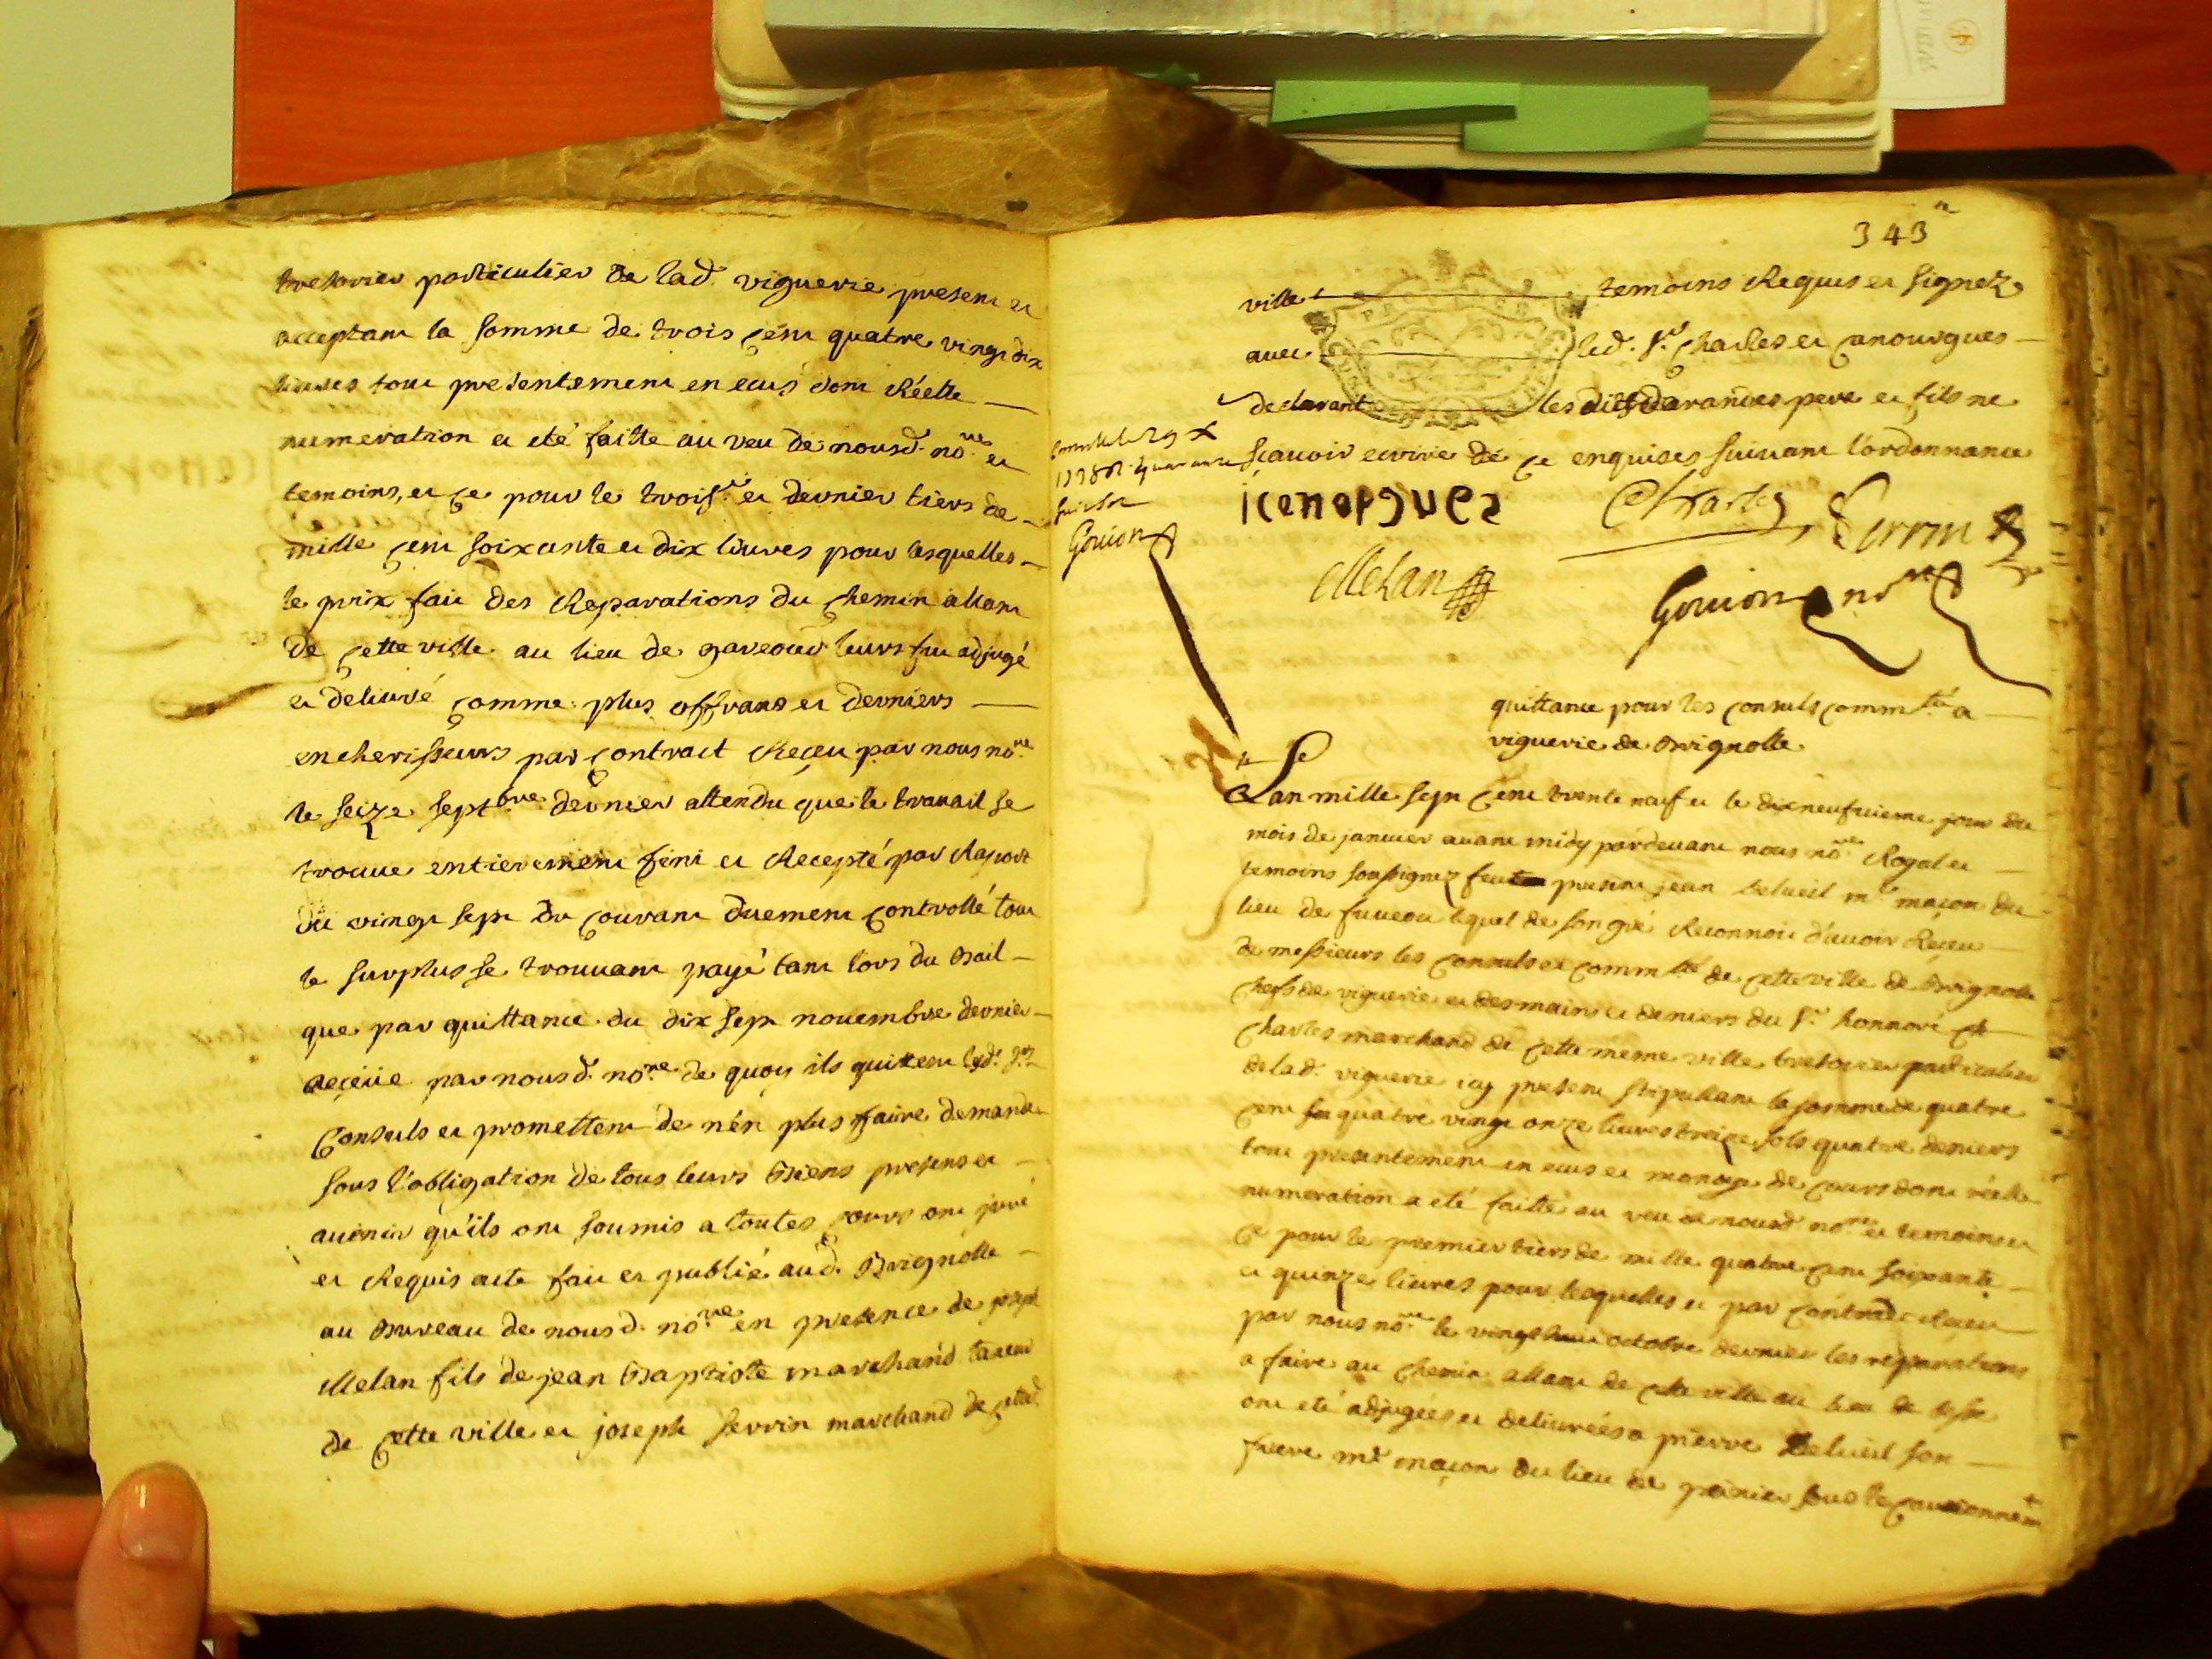 tresorier particulier de lad. viguerie present et
acceptant la somme de trois cent quatre vingt dix
livres tout presentement en ecus dont Réelle
numeration a eté faitte au veu de nousd. no.re et
temoins, et ce pour le trois.e et dernier tiers de
mille cent soixante et dix livres pour lesquelles
le prix fait des Reparations du chemin allant
de cette ville au lieu de gareoud leurs fut adjugé
et delivré comme plus offrans et derniers
encherisseurs par contract Receu par nous no.re
le seize sept.bre dernier attendu que le travail se
trouve entierement fini et Recepté par Raport
du vingt sept du courant duement controllé tout
le surplus se trouvant payé tant lors du Bail
que par quittance du dix sept novembre dernier
receüe par nousd. no.re de quoy ils quittent lesd. s.rs
Consuls et promettent de n'en plus faire demande
sous l'obligation de tous leurs Biens presens et
avenir qu'ils ont soumis a toutes cours ont juré
et Requis acte fait et publié aud. Brignolle
au Bureau de nousd. no.re en presence de joseph
Melan fils de jean Baptiste marchand taneur
de cette ville et joseph serrin marchand de cetted.
343
ville temoins Requis et signez
avec led. s.r Charles et canourgues
declarant les dits darances pere et fils ne
scavoir ecrire de ce enquises suivant l'ordonnance
Goujon
Charles Serrin
Melan
Goujon no.re
quittance pour les consuls comm.té a
viguerie de Brignolle
L'an mille sept cent trente neuf et le dixneufvieme jour du
mois de janvier avant midy pardevant nous no.re Royal et
temoins soussignez feut present jean Belueil m.e maçon du
lieu de fuveau lequel de son gré Reconnoit d'avoir Receu
de messieurs les consuls et comm.té de cette ville de Brignolle
chefs de viguerie et des mains et deniers du s.r honnoré ch
Charles marchand de cette meme ville tresorier particulier
de lad. viguerie icy present stipullant la somme de quatre
cent quatre vingt onze livres treize sols quatre deniers
tout presentement en ecus et monoye de cours dont réelle
numeration a eté faitte au veu de nousd. no.re et temoins et
ce pour le premier tiers de mille quatre cent soixante
et quinze livres pour lesquelles et par contract Receu
par nous no.re le vingt huit octobre dernier les reparations
a faire au chemin allant de cette ville au lieu de besse
ont eté adjugées et delivrées a pierre Belueil son
frere m.e maçon du lieu de peinier sous le cautionnem.t